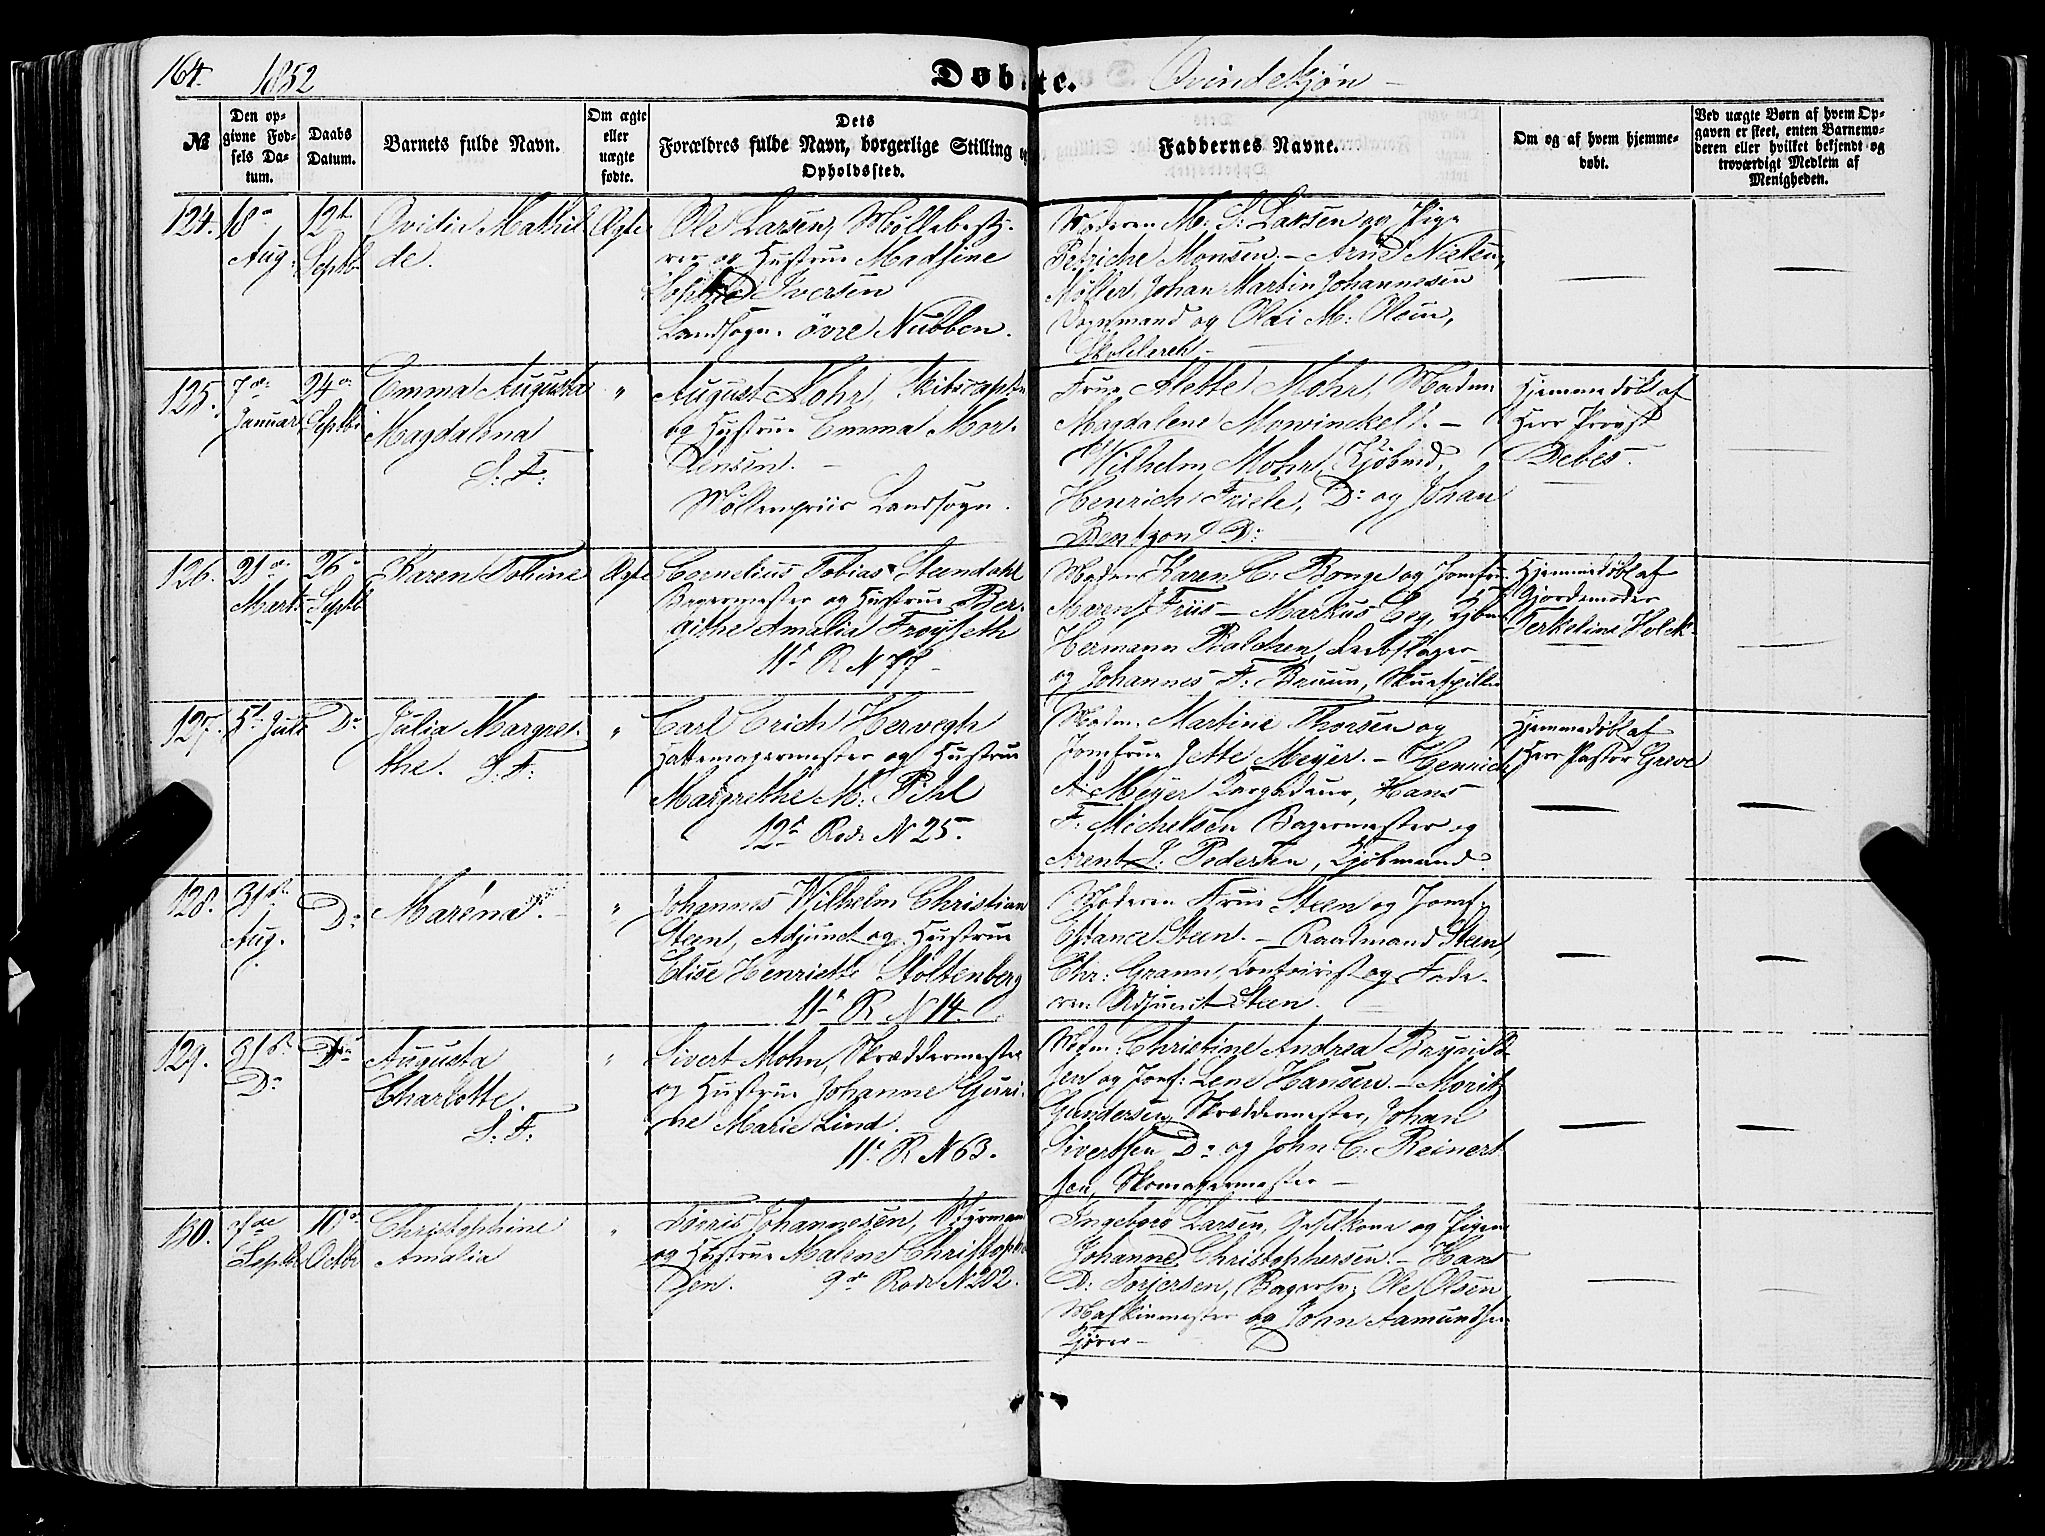 164.
1852
Døbte.
Qvindekjøn
№
Den op-
givne Fød-
sels Da-
tum.
Daabs
Datum.
Barnets fulde Navn.
Om ægte
eller
uægte
fødte.
Dets
Forældres fulde Navn, borgerlige Stilling og
Opholdssted.
Faddernes Navne.
Om og af hvem hjemme-
døbt.
Ved uægte Børn af hvem Op-
gaven er skeet, enten Barnemo-
deren eller hvilket bekjendt og
troværdigt Medlem af
Menigheden.
124.
18
Aug.
12
Septbr
Ovidia Mathil
de.
Ægte
Ole Larsen, Møllebesty-
rer og Hustrue Madsine
Sophie Iversen
Landsogn. övre Nubben.
Moderen M. S. Larsen og Pige
Petriche Monsen. - Arne Nielsen,
Møller, Johan Martin Johannesen
Vognmand og Olai M. Olsen,
125.
7de
Januar
24
Septbr
Emma Augusta
Magdalena
S. F.
"
August Mohr, Skibscaptn
og Hustrue Emma Mor-
tensen. -
Møllenpriis Landsogn.
Frue Alette Mohr, Madm:
Magdalene Mowinckel. -
Wilhelm Mohr, Kjøbmd,
Henrich Friele, Do og Johan
Bentzon Do
Hjemmedøbt af
Herr Provst
Debes.
126.
21
Marts
26
Septbr
Karen Tobine
Ægte
Cornelius Tobias Steendahl
Bagermester og Hustrue Ber-
githe Amalia Frøyseth
11te R N 77
Madm Karen C. Bonge og Jomfru
Maren Friis - Markus Eeg, Kjbm
Hermann Baldchen, Reebslager
og Johannes F. Bruun, Skuespiller
Hjemmedøbt af
Gjordemoder
Terkeline Holck
127.
5t Juli
Do
Julia Margre-
the. S. F.
"
Carl Erich Hervegh
Hattemagermester og Hustrue
Margrethe M. Pihl
12te Rode N 25.
Madm. Martine Thorsen og
Jomfrue Jette Meyer. - Henrich
A. Meyer Dargadeur, Hans
F. Michelsen Bagermester og
Arent J. Pedersen, Kjøbmand.
Hjemmedøbt af
Herr Pastor Greve
128.
31te
Aug.
Do
Maréna.
"
Johannes Wilhelm Christian
Steen, Adjunct og Hustrue
Elise Henriette Stoltenberg
11te R N 14.
Moderen Frue Steen og Jomf.
Steen. - Raadmand Steen,
Chr. Grann, Contoirist og Fade-
ren Adjunct Steen.
129.
31te
Do
Do
Augusta
Charlotte.
S. F.
"
Sivert Mohn, Skræddermester
og Hustrue Johanne Guri-
ne Marie Lind.
11te R N 63.
Mdm: Christine Andrea Bøyried-
sen og Jomf: Lene Hansen. - Moritz
Gundersen, Skræddermester, Johan
Sivertsen Do og John C. Reinert-
sen, Skomagermester -
130.
7de
Septbr
10de
Octbr
Christophine
Amalia
"
Tørris Johannesen, Styrman
og Hustrue Malene Christophe
sen. 9de Rode N 202.
Ingeborg Larsen, Giftkone og Pigen
Johanne Christophersen. - Hans
D. Torjersen, Bagersv, Ole Olsen
Maskinmester og John Aamundsen
Kjører -